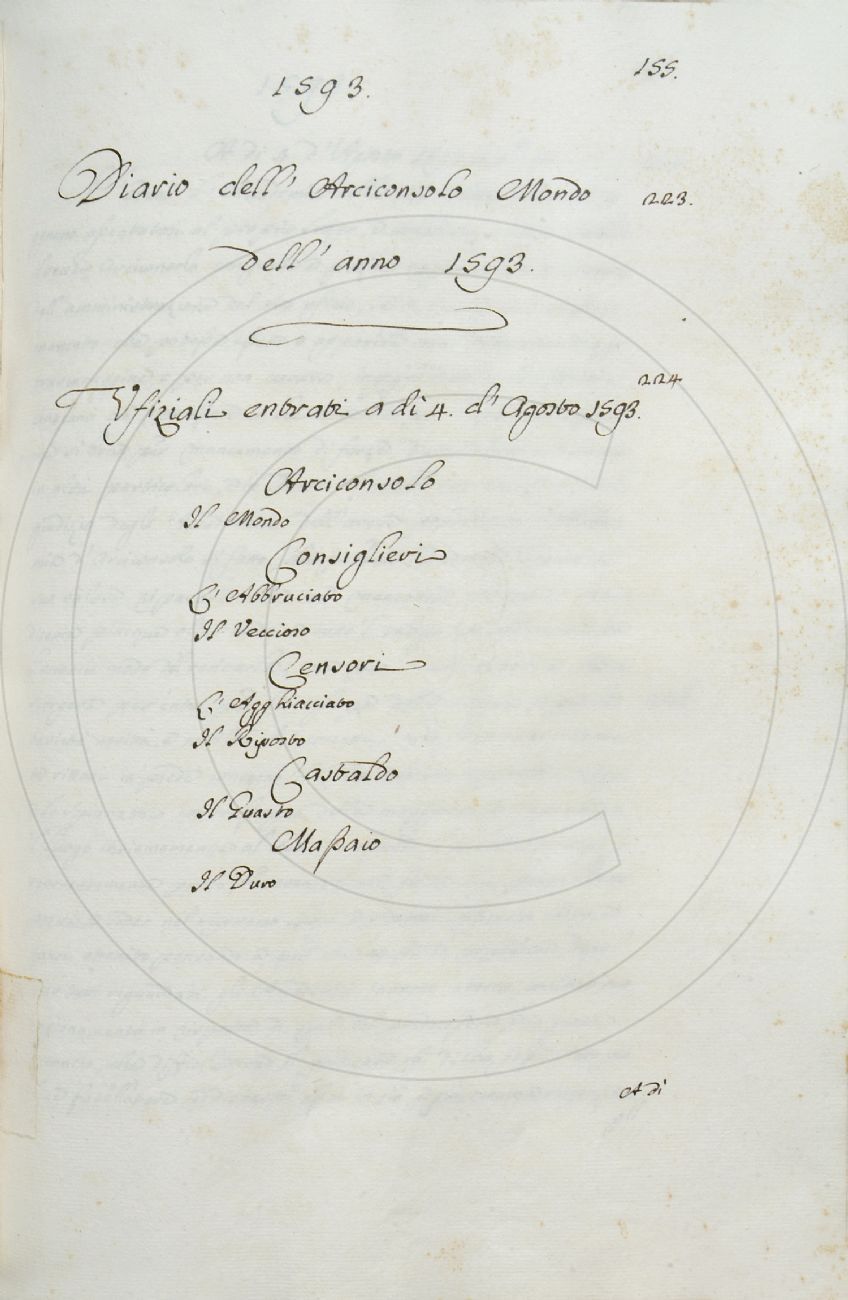 155.
1593.
Diario dell' Arciconsolo Mondo 223.
dell' anno 1593.
224
Vfiziali entrati a dì 4. d' Agosto 1593.
Arciconsolo
Il Mondo
Consiglieri
L' Abbruciato
Il Veccioso
Censori
L' Agghiacciato
Il Riposto
Castaldo
Il Guasto
Maßaio
Il Duro
A dì